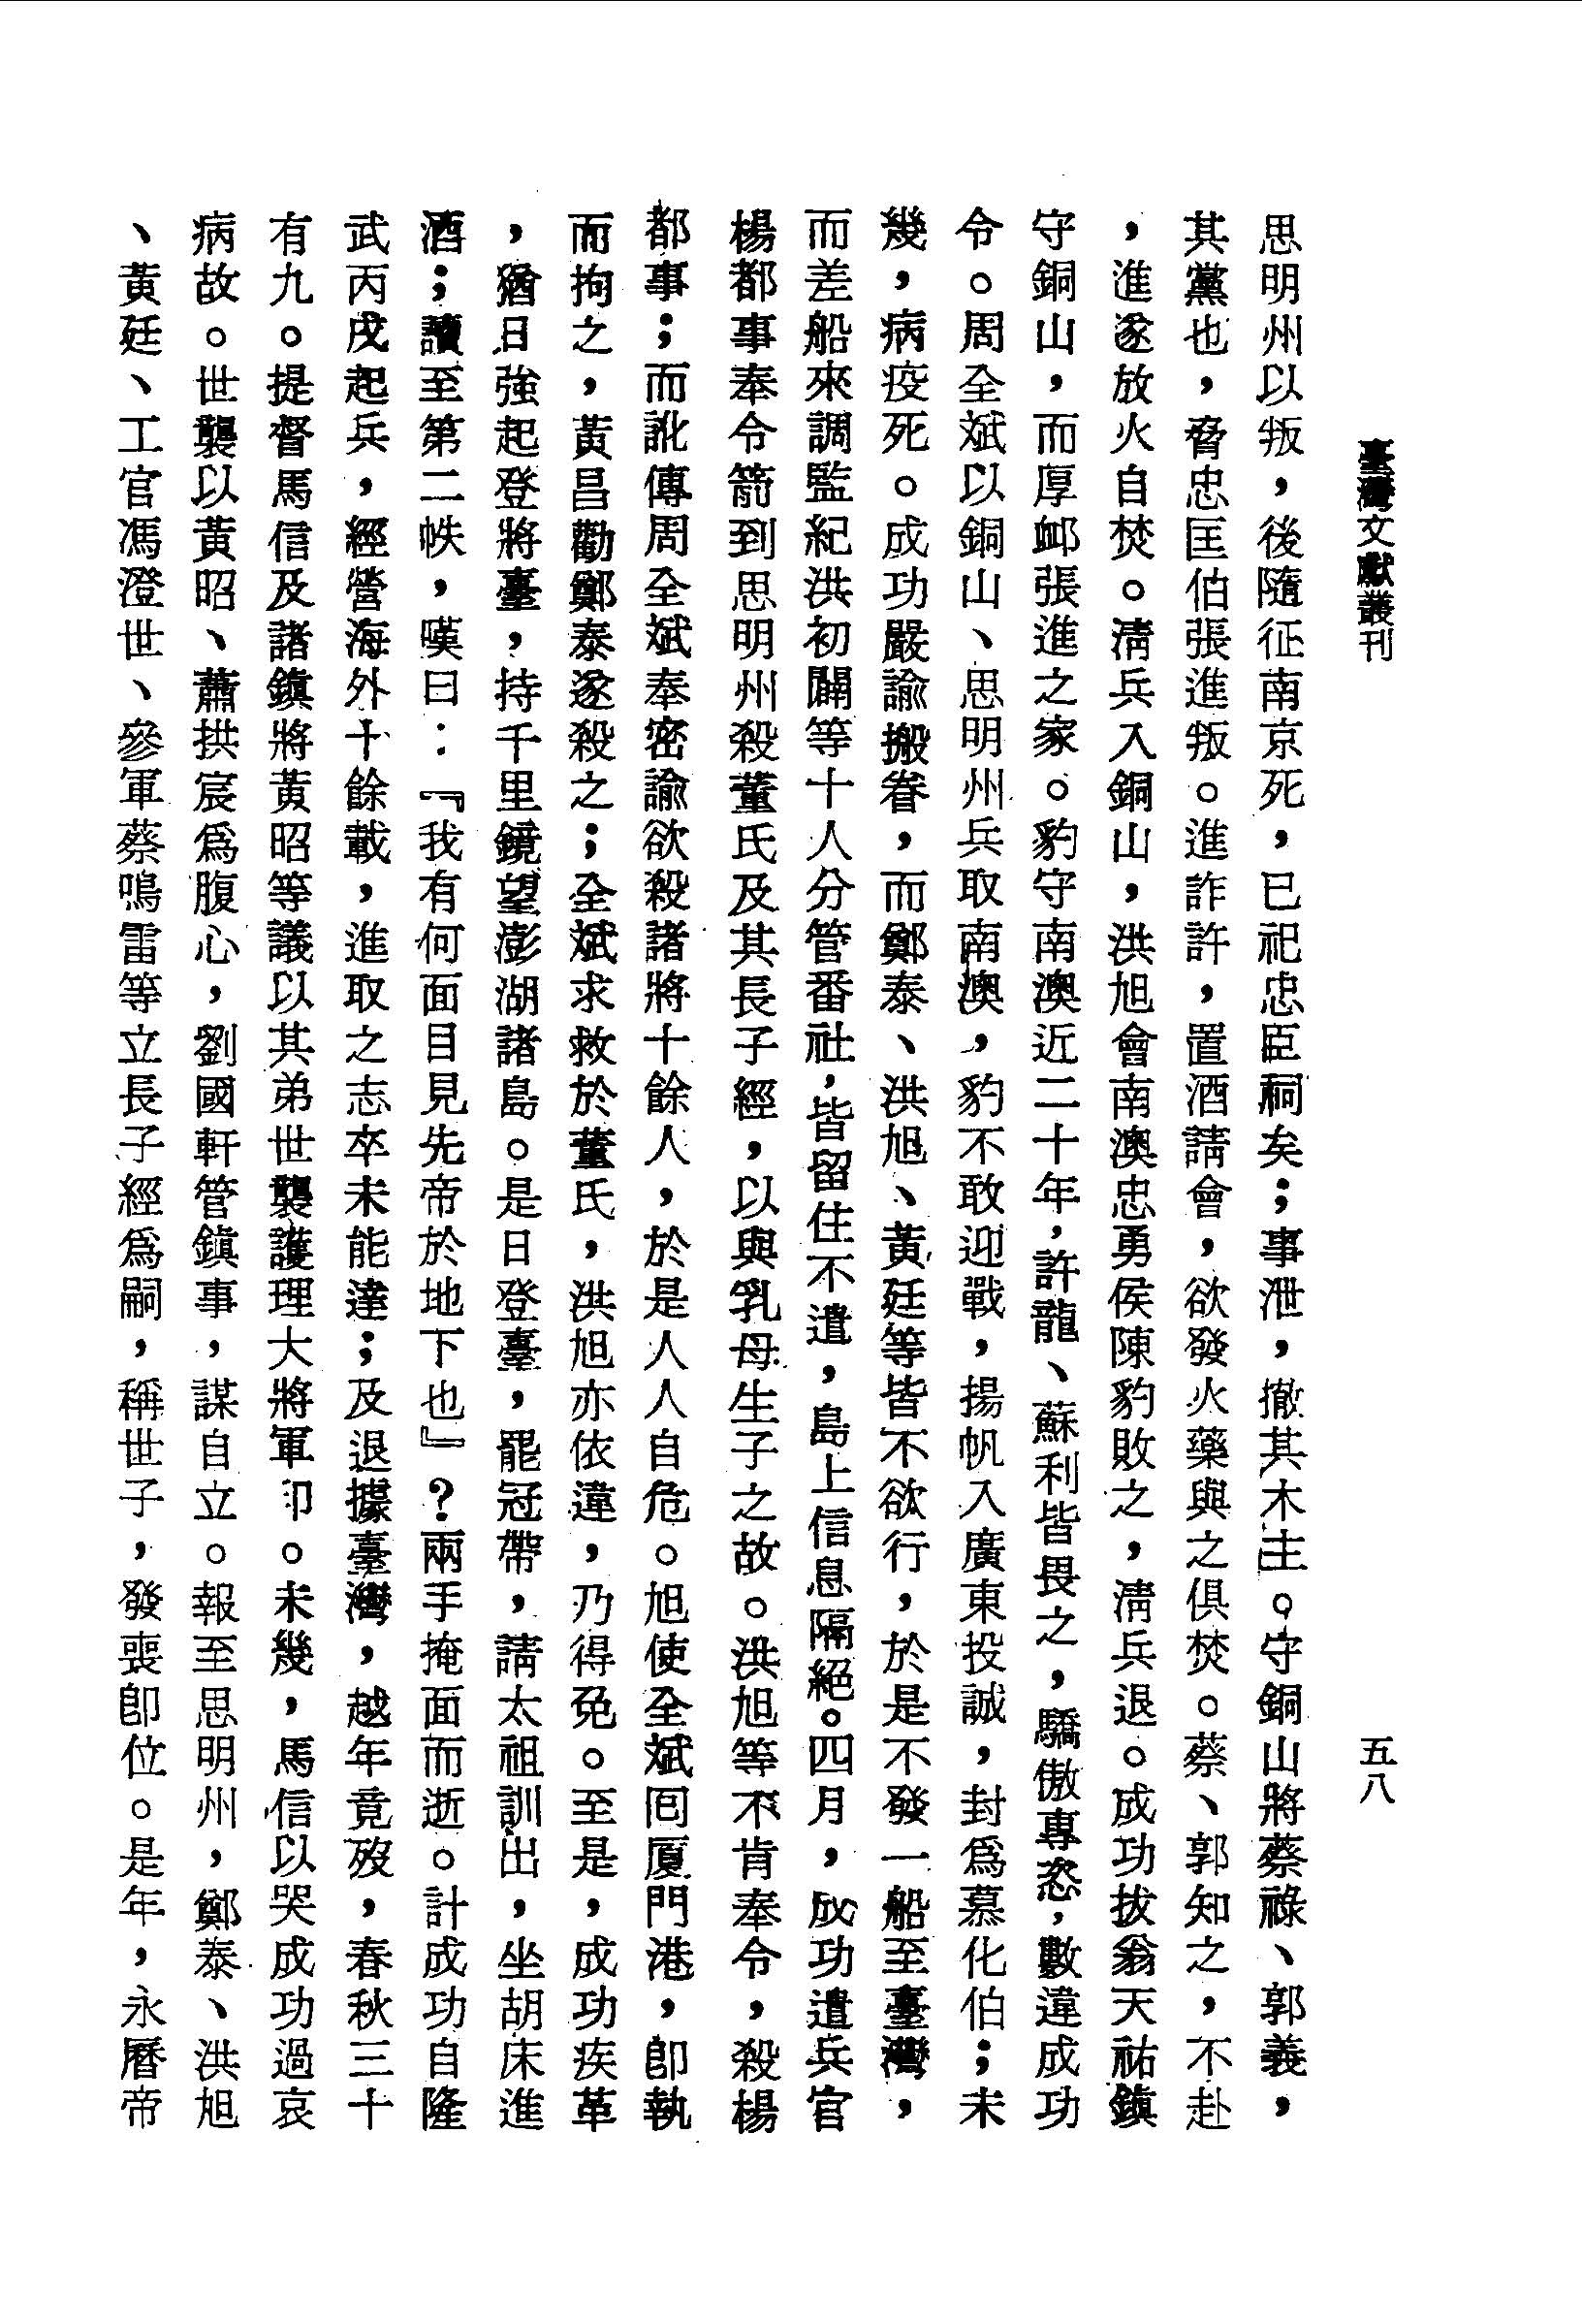 臺灣文獻叢刊　五八
思明州以叛，後隨征南京死，已祀忠臣祠矣；事泄，撤其木主。守銅山將蔡祿、郭義，
其黨也，脅忠匡伯張進叛。進詐許，置酒請會，欲發火藥與之俱焚。蔡、郭知之，不赴
，進遂放火自焚。清兵入銅山，洪旭會南澳忠勇侯陳豹敗之，清兵退。成功拔翁天祐鎮
守銅山，而厚卹張進之家。豹守南澳近二十年，許龍、蘇利皆畏之，驕傲專恣，數違成功
令。周全斌以銅山、思明州兵取南澳，豹不敢迎戰，揚帆入廣東投誠，封爲慕化伯；未
幾，病疫死。成功嚴諭搬眷，而鄭泰、洪旭、黃廷等皆不欲行，於是不發一船至臺灣，
而差船來調監紀洪初闢等十人分管番社，皆留住不遣，島上信息隔絕。四月，成功遣兵官
楊都事奉令箭到思明州殺董氏及其長子經，以與乳母生子之故。洪旭等不肯奉令，殺楊
都事；而訛傳周全斌奉密諭欲殺諸將十餘人，於是人人自危。旭使全斌囘厦門港，卽執
而拘之，黃昌勸鄭泰遂殺之；全斌求救於董氏，洪旭亦依違，乃得免。至是，成功疾革
，猶日強起登將臺，持千里鏡望澎湖諸島。是日登臺，罷冠帶，請太祖訓出，坐胡床進
酒；讀至第二帙，嘆曰：『我有何面目見先帝於地下也』？兩手掩面而逝。計成功自隆
武丙戌起兵，經營海外十餘載，進取之志卒未能達；及退據臺灣，越年竟歿，春秋三十
有九。提督馬信及諸鎮將黃昭等議以其弟世襲護理大將軍印。未幾，馬信以哭成功過哀
病故。世襲以黃昭、蕭拱宸爲腹心，劉國軒管鎮事，謀自立。報至思明州，鄭泰、洪旭
、黃廷、工官馮澄世、參軍蔡鳴雷等立長子經爲嗣，稱世子，發喪卽位。是年，永曆帝